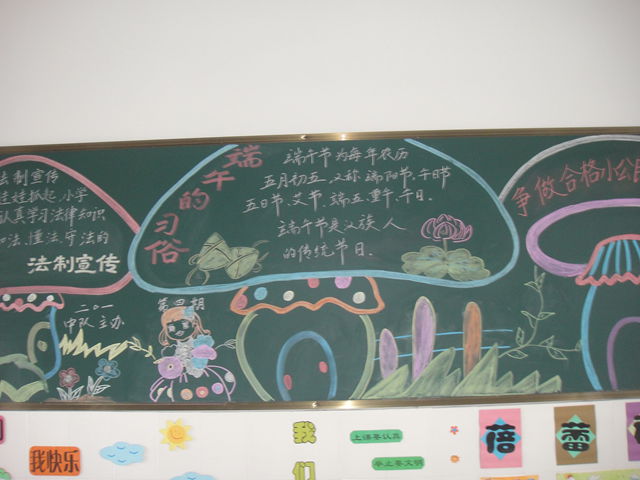 法制宣传
娃娃抓起,小学
认真学习法律知识
知法、懂法、守法的
法制宣传
二〇一
中队主办
端午的习俗
端午节为每年农历
五月初五,又称端阳节、午日节
五日节、艾节、端五、重午、午日。
端午节是汉族人
的传统节日。
第四期
争做合格小公民
我快乐
我们
上课要认真
举止要文明
蓓
蕾